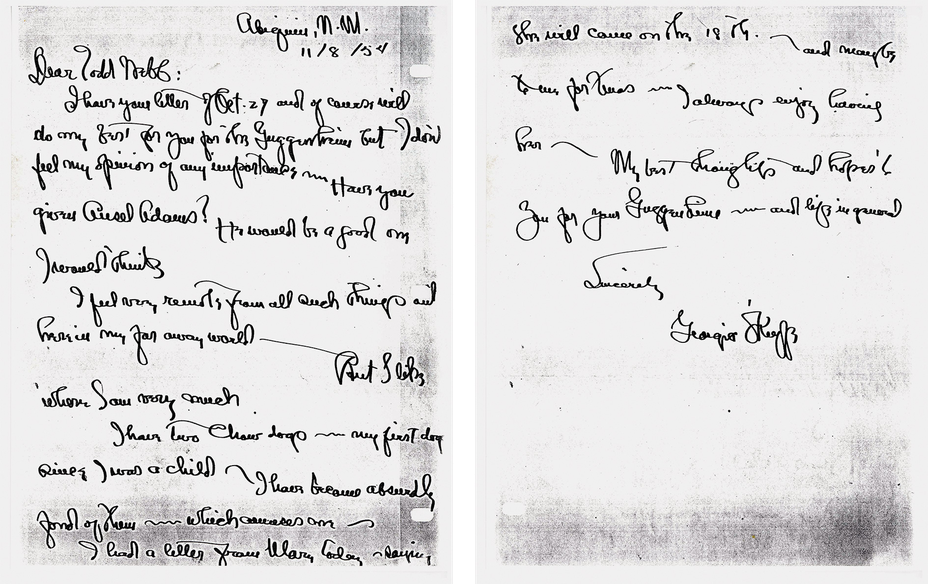 Abiquiu, N.M.
11/8/54
Dear Todd Webb:
I have your letter of Oct. 27 and of course will
do my best for you for the Guggenheim but I don't
feel my opinion of any importance — Have you
given Ansel Adams? He would be a good one
I would think
I feel very remote from all such things out
here in my far away world —
But I like
where I am very much
I have two Chow dogs — my first dog
since I was a child — I have become absurdly
fond of them — which amuses me —
I had a letter from Mary today — saying
she will come on the 18th. — and maybe
to me for Xmas — I always enjoy having
her — My best thoughts and hopes to
You for your Guggenheim — and life in general
Sincerely
Georgia O'Keeffe